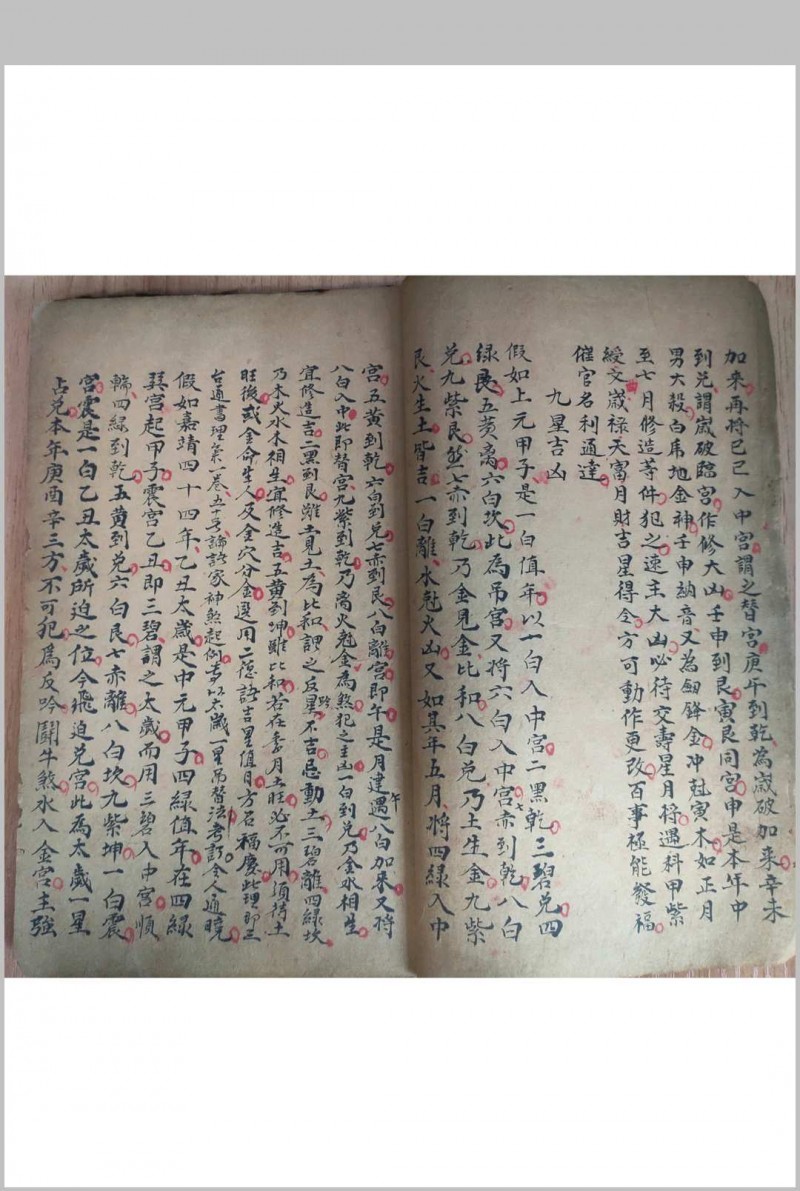 加来再将己巳入中宮謂之替宮庚午到乾為嵗破加来辛未
到兑謂嵗破臨宮作修大凶壬申到艮寅艮同宮申是本年中
男大殺白虎地金神壬申納音又為劍鋒金冲尅寅木如正月
至七月修造等件犯之速主大凶必待交壽星月将遇科甲紫
綬文嵗禄天富月財吉星得令方可動作更改百事極能發福
催官名利通達
九星吉凶
假如上元甲子是一白值年以一白入中宮二黑乾三碧兑四
绿艮五黄离六白坎此為吊宮又将六白入中宮七赤到乾八白
兑九紫艮然七赤到乾乃金見金比和八白兑乃土生金九紫
艮火生土皆吉一白離水尅火凶又如其年五月将四緑入中
宮五黄到乾六白到兑七赤到艮八白離宮即午是月建遇八白加来又将
八白入中此即替宮九紫到乾乃离火尅金為煞犯之主凶一白到兑乃金水相生
宜修造吉二黑到艮雖土見土為比和謂之反星不吉忌動土三碧離四緑坎
乃木火水木相生宜修造吉五黄到坤雖比和若在季月土旺必不可用須待土
旺後或金命生人及金穴分金選用二德諸吉星值日方召福慶此理即三
台通書理氣一卷五十号論諸家神煞起例多以太嵗一星吊替法考訂令人通曉
假如嘉靖四十四年乙丑太嵗是中元甲子四緑值年在四緑
巽宮起甲子震宮乙丑即三碧謂之太嵗而用三碧入中宮順
輪四緑到乾五黄到兑六白艮七赤離八白坎九紫坤一白震
宮震是一白乙丑太嵗所迫之位今飛迫兑宮此為太嵗一星
占兑本年庚酉辛三方不可犯為反吟鬪牛煞水入金宮主強